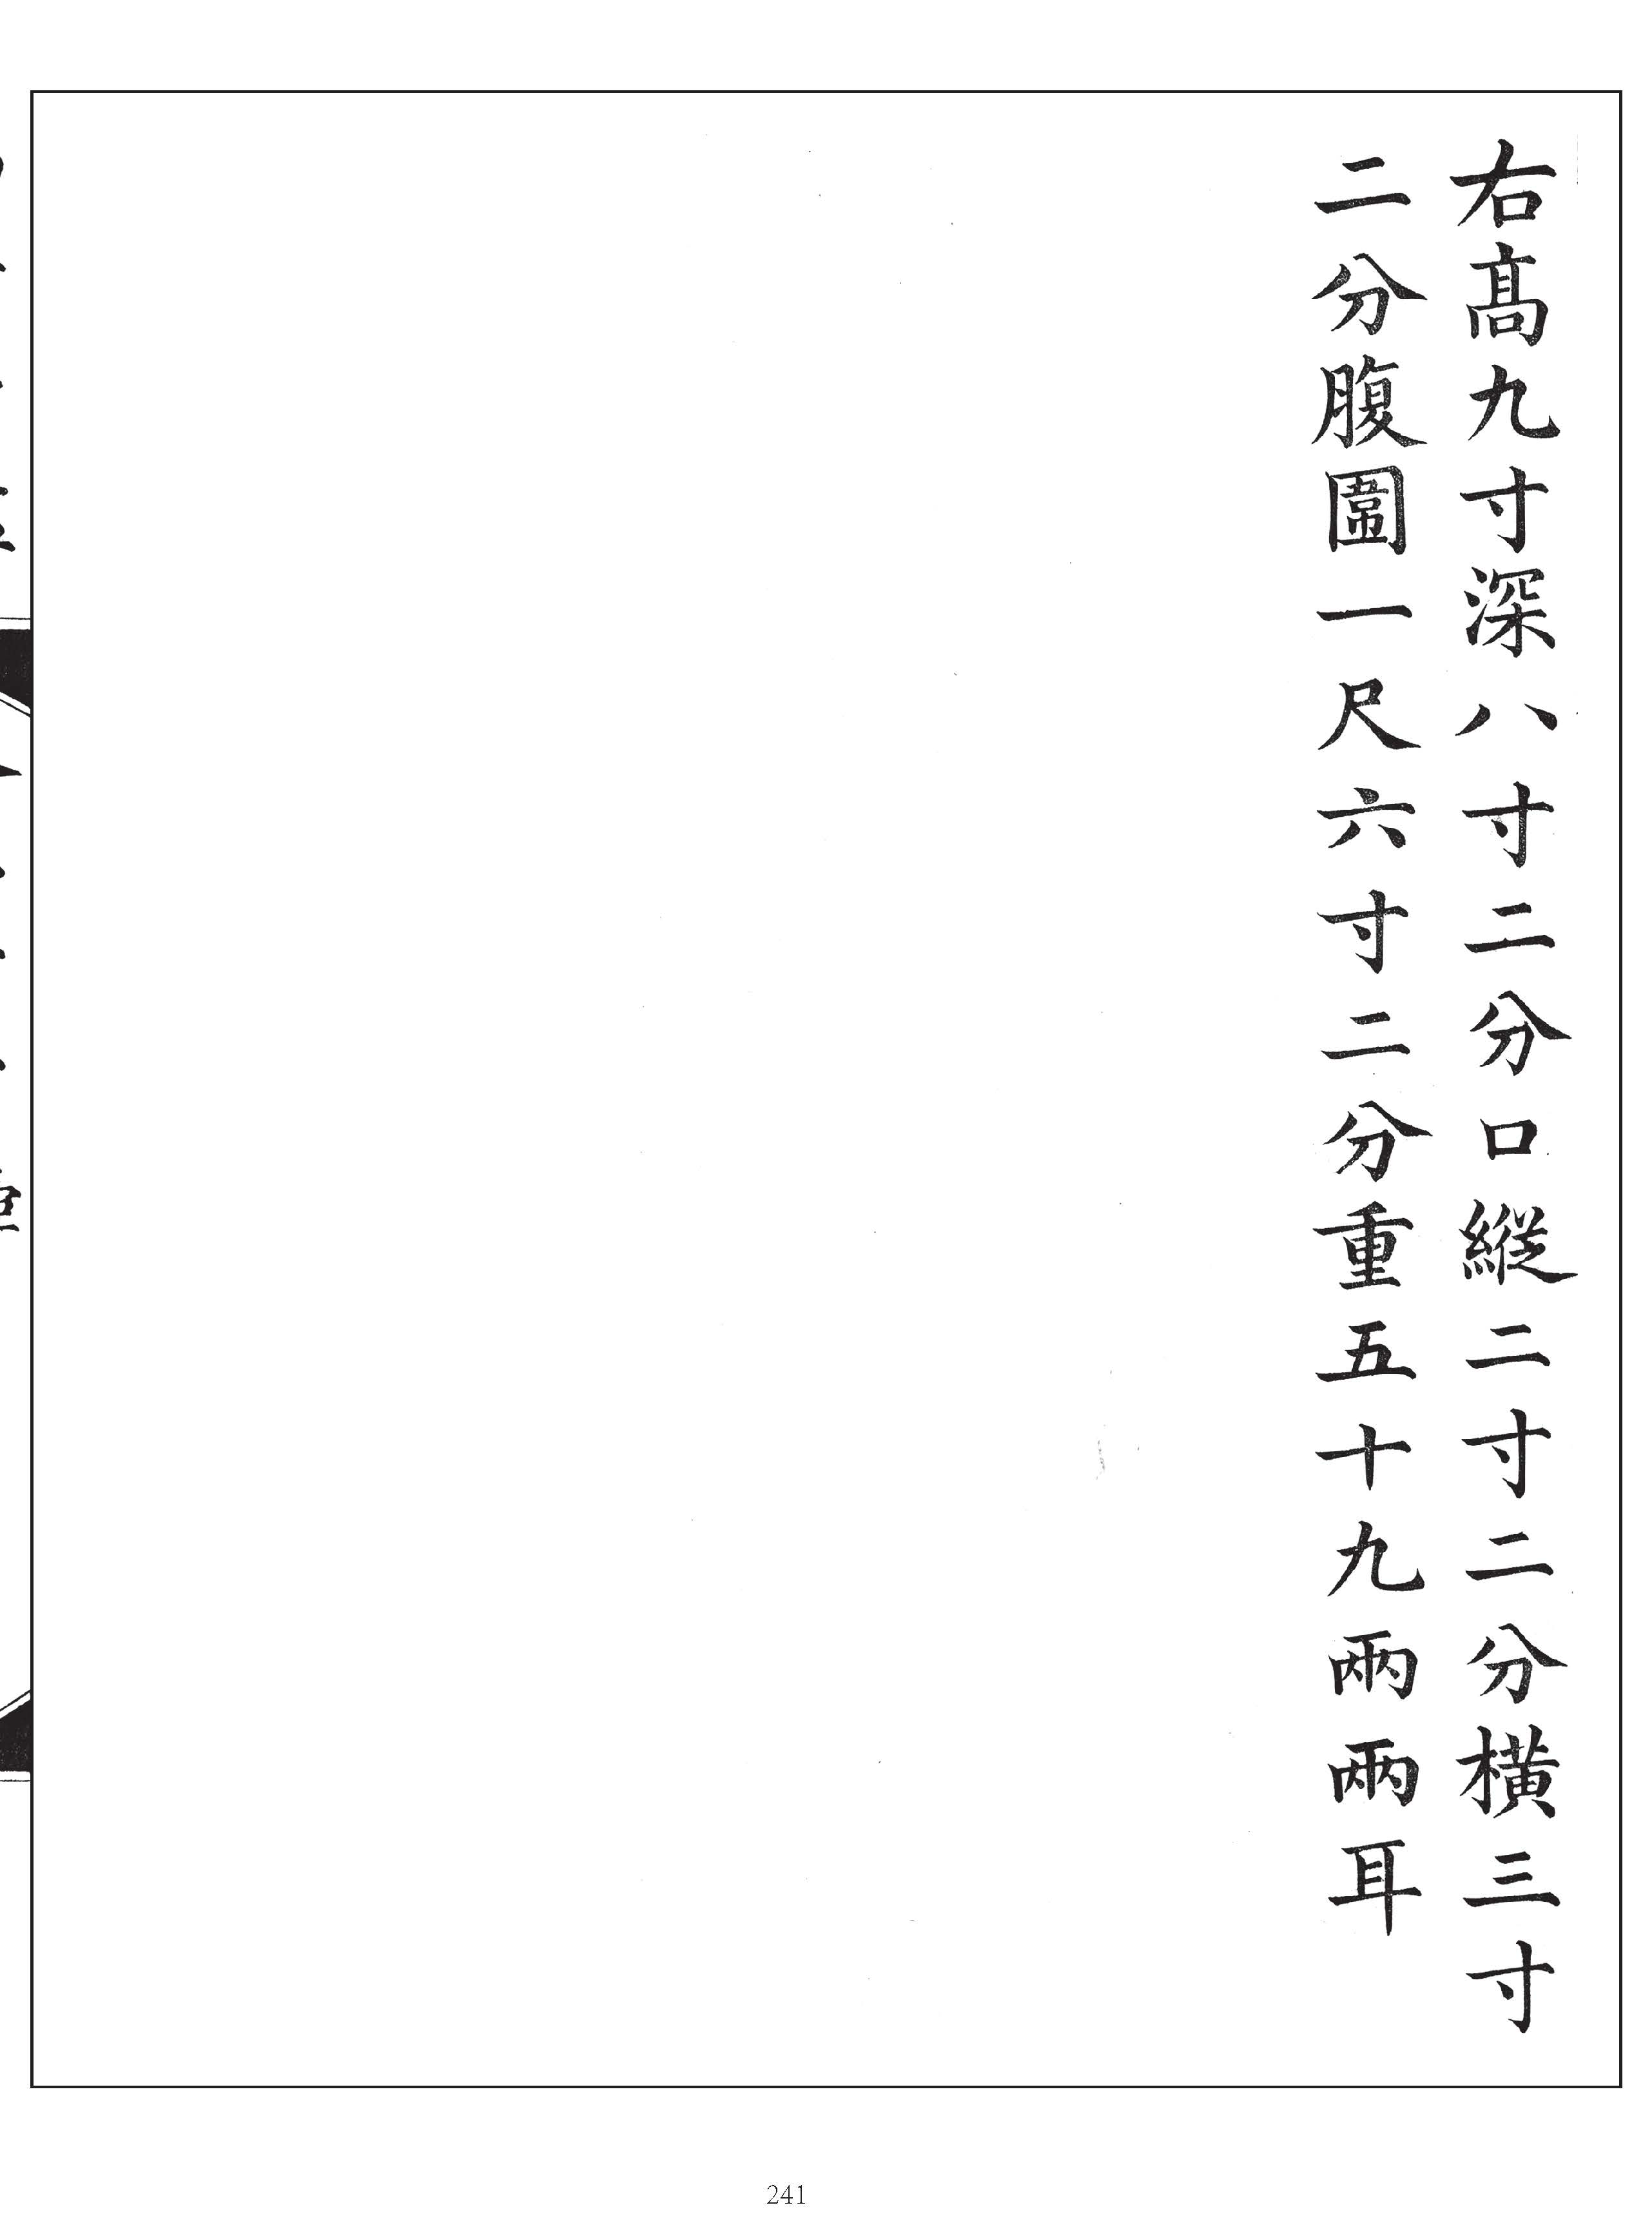 右髙九寸深八寸二分口縱二寸二分橫三寸
二分腹圍一尺六寸二分重五十九兩兩耳
241